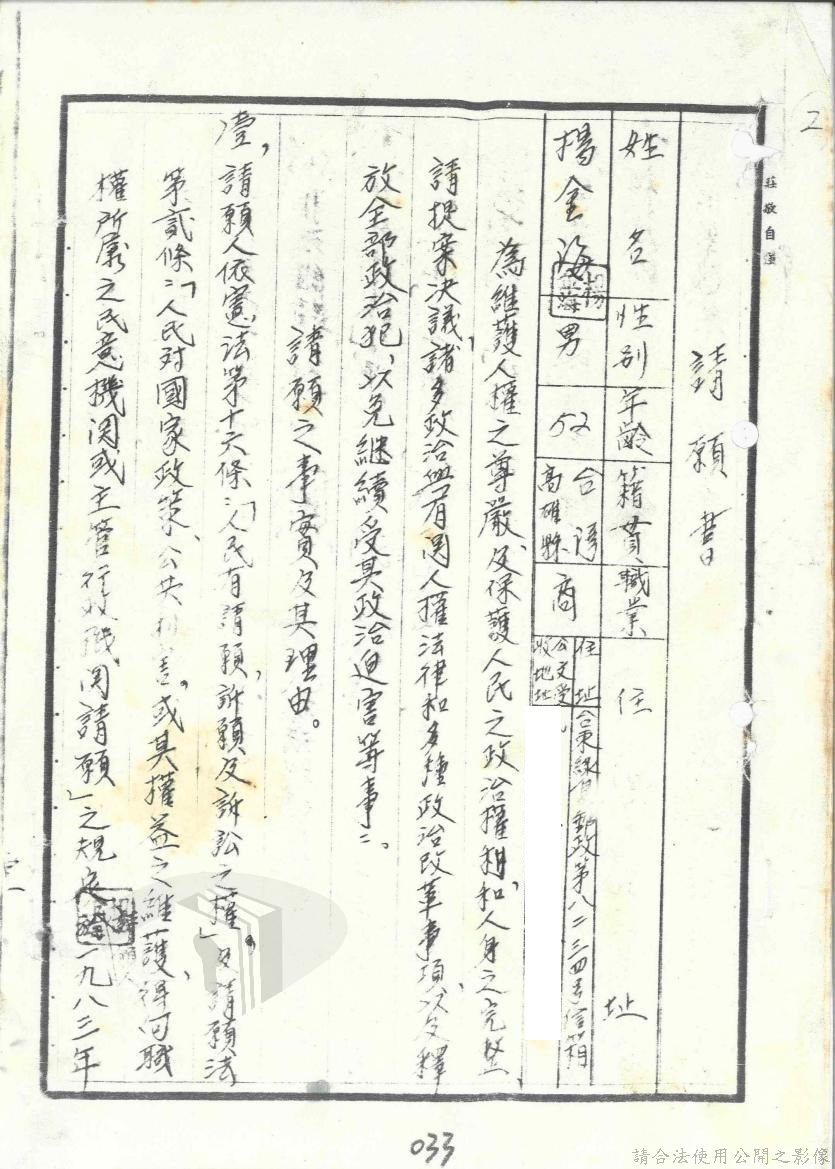 2
莊敬自强
請願書
姓名 性別 年齡 籍貫 職業 住址
楊金海 男 52 台灣高雄縣 商
住址 台東綠島郵政第八二三四号信箱
公文受收地址
為維護人權之尊嚴,及保護人民之政治權利,和人身之完整,
請提案决議,諸多政治與有関人權法律和多種政治改革事項,以及釋
放全部政治犯,以免继續受其政治迫害等事:。
請願之事實及其理由。
壹,請願人依憲法第十六條:「人民有請願,訴願及訴訟之權」及請願法
第貳條:「人民对國家政策、公共利害,或其權益之維護,得向職
權所屬之民意機関或主管行政機関請願」之規定,一九八三年
033
請合法使用公開之影像